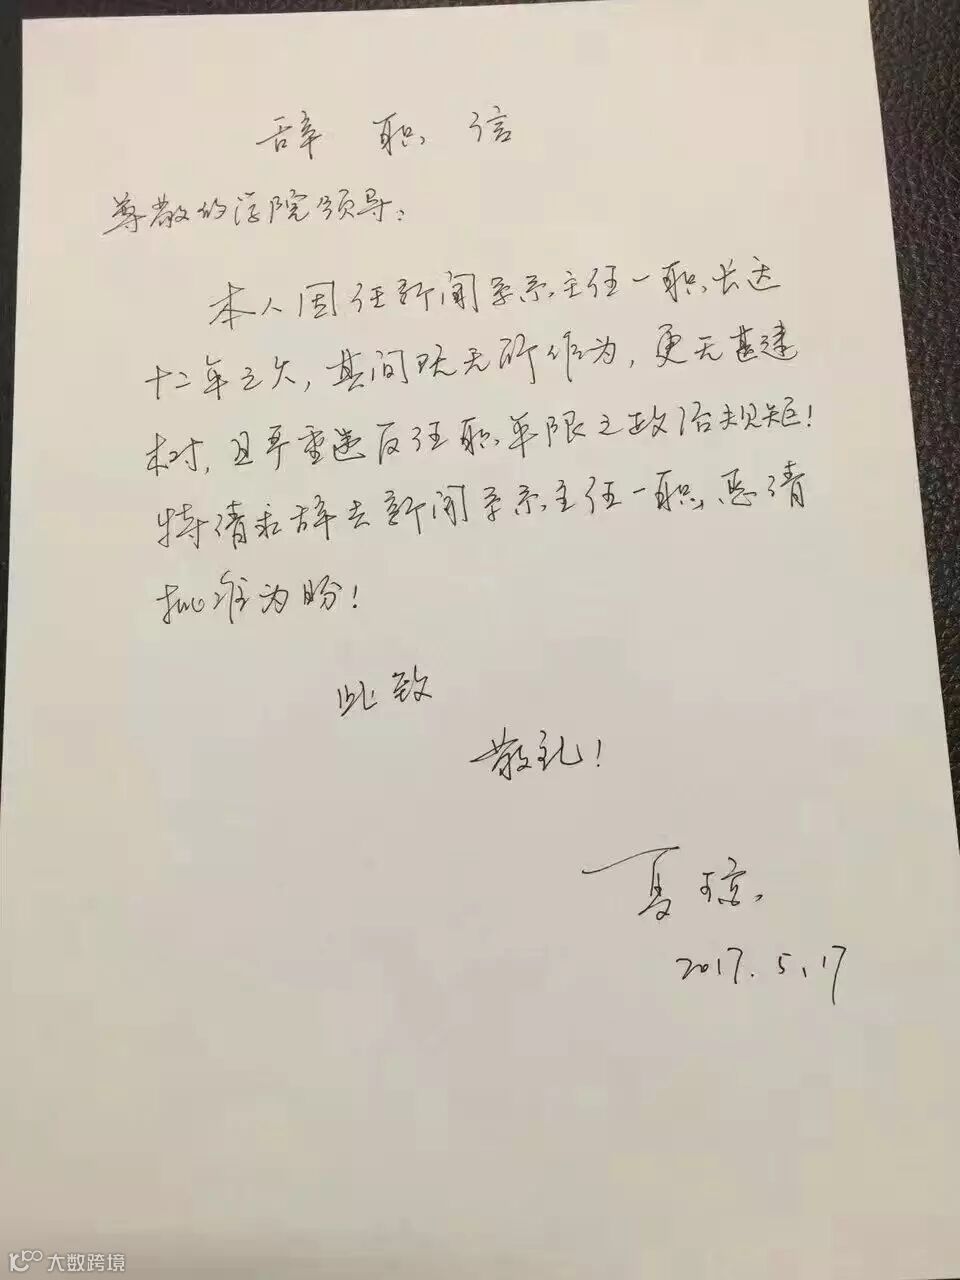 辞职信
尊敬的学院领导：
本人因任新闻学系主任一职长达
十二年之久，其间既无所作为，更无甚建
树，且严重违反任职年限之政治规矩！
特请求辞去新闻学系主任一职，恳请
批准为盼！
此致
敬礼！
夏琼
2017.5.17
大数跨境